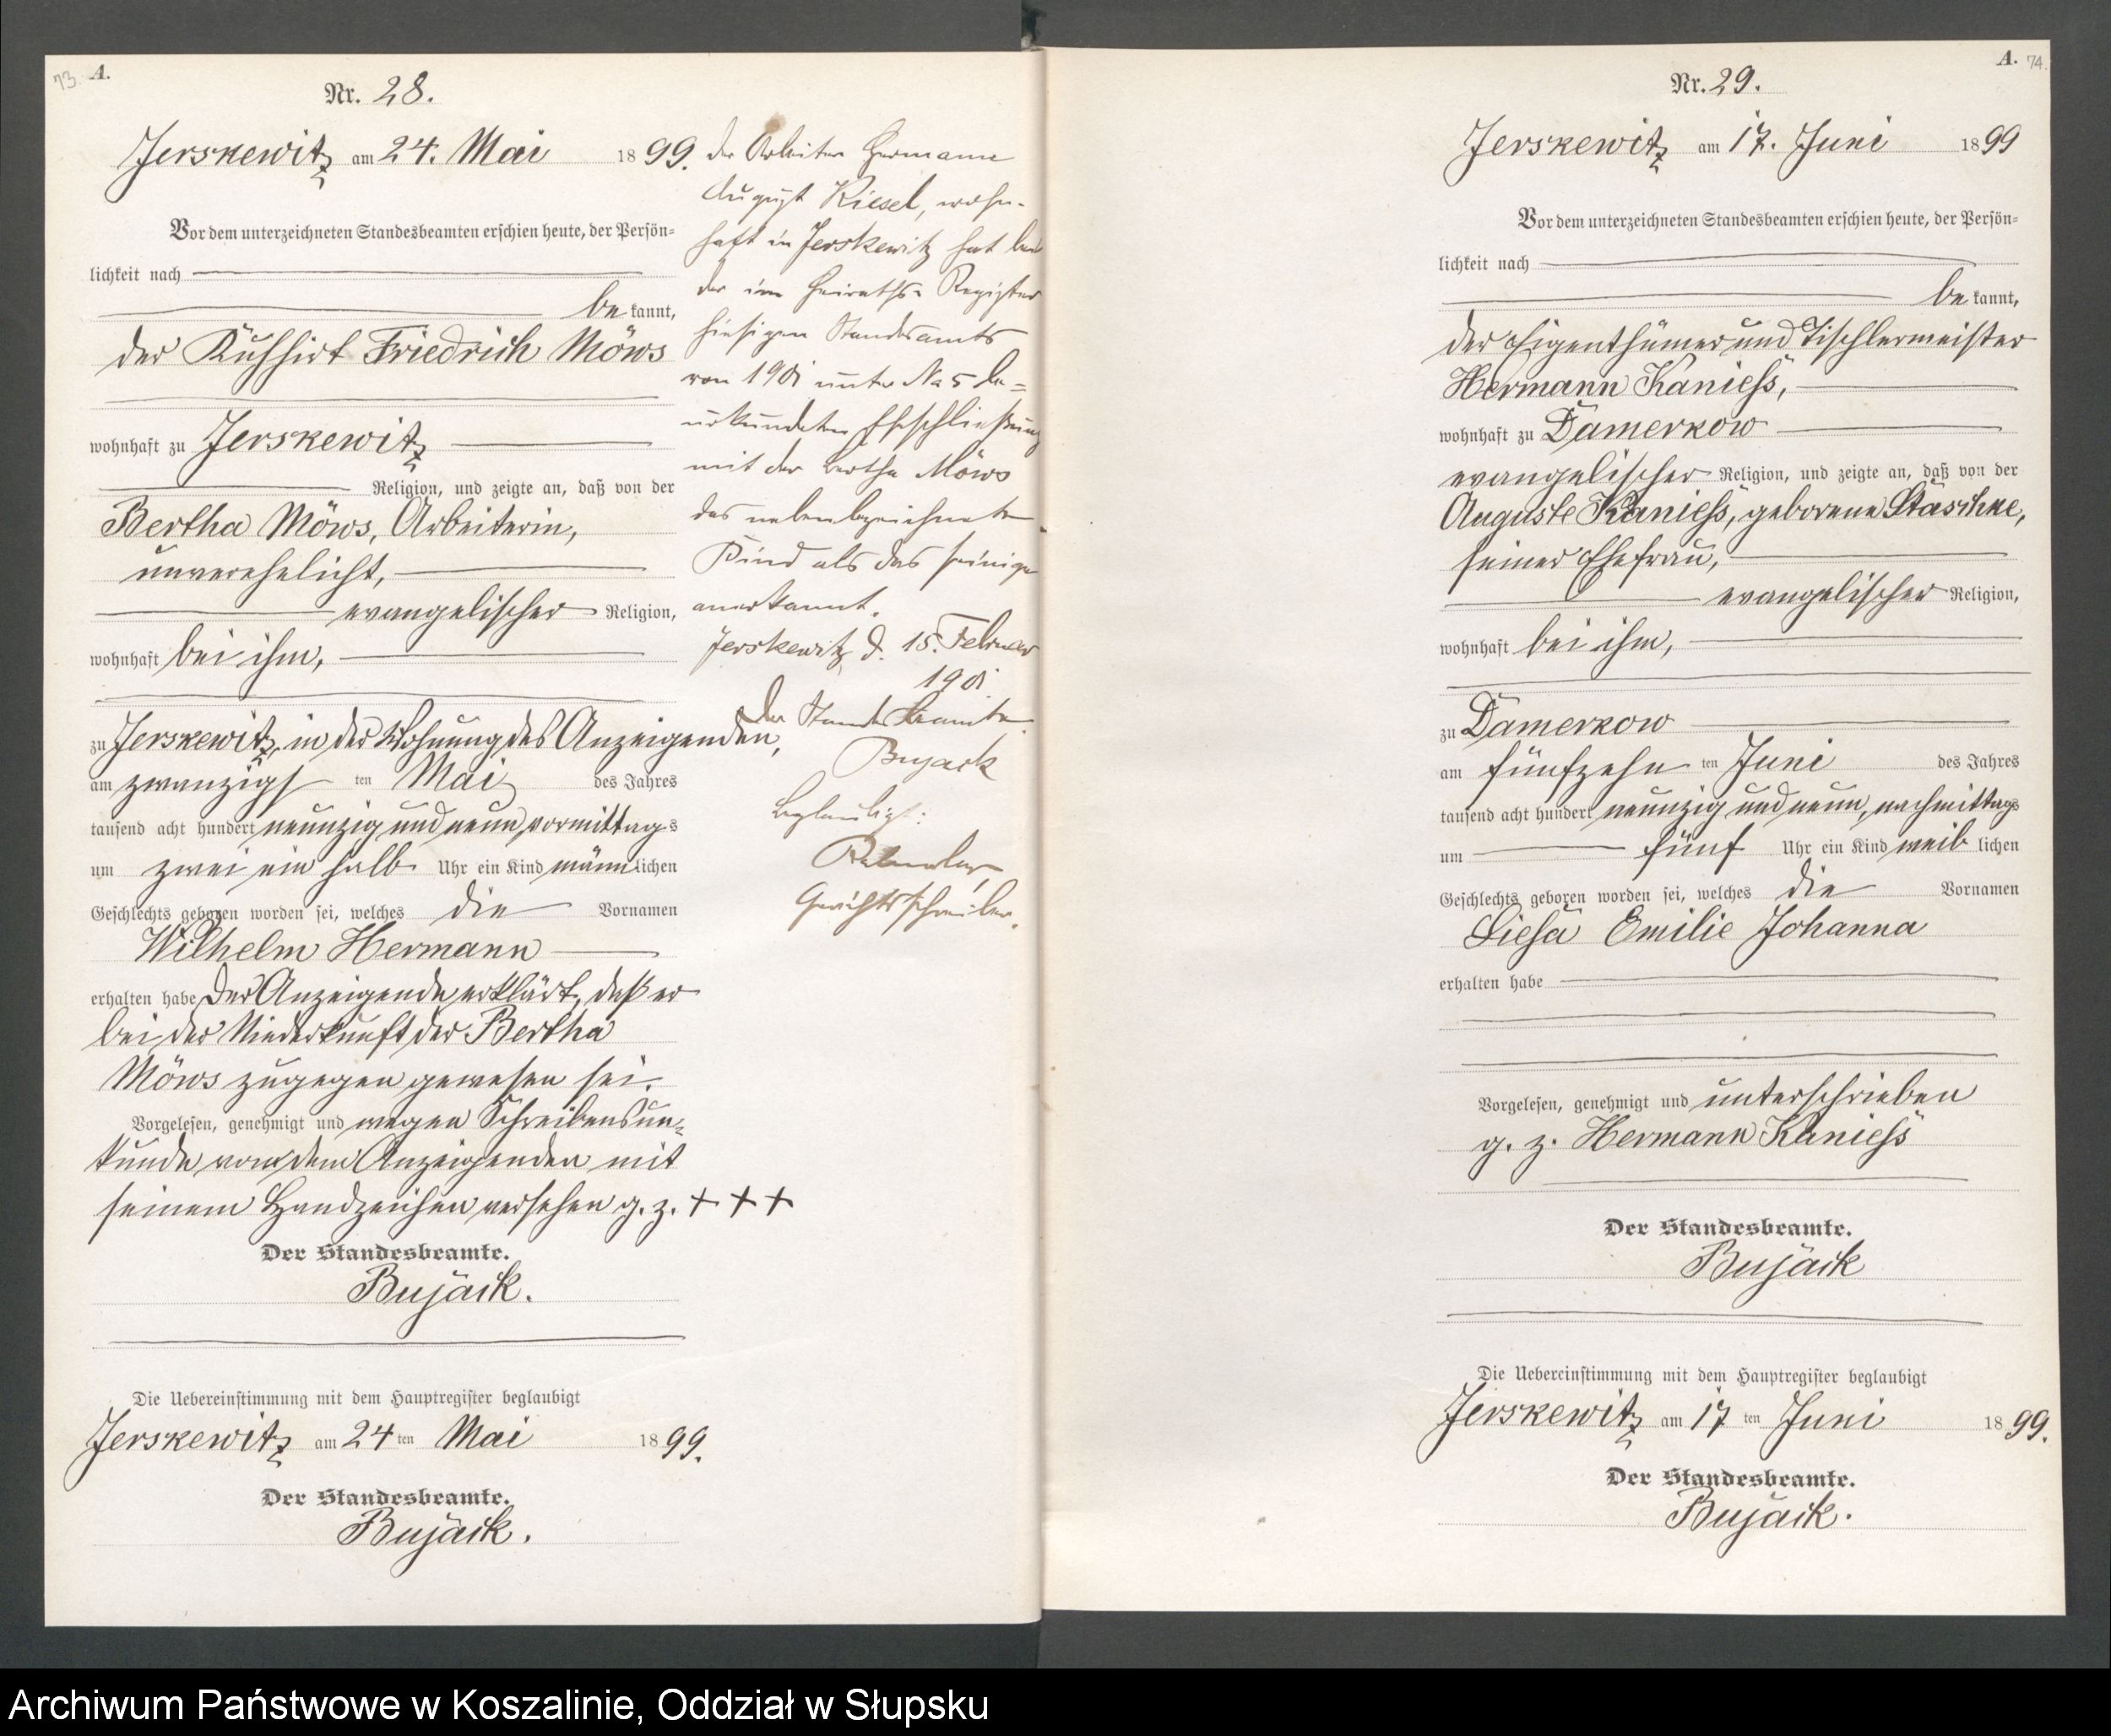 73. A.
Nr. 28.
Jerskewitz am 24. Mai 1899.
Vor dem unterzeichneten Standesbeamten erschien heute, der Persön=
lichkeit nach
be kannt,
der Kuhhirt Friedrich Möws
wohnhaft zu Jerskewitz
Religion, und zeigte an, daß von der
Bertha Möws, Arbeiterin,
unverehelicht,
evangelischer Religion,
wohnhaft bei ihm,
zu Jerskewitz, in der Wohnung des Anzeigenden,
am zwanzigs ten Mai des Jahres
tausend acht hundert neunzig und neun, vormittags
um zwei ein halb Uhr ein Kind männlichen
Geschlechts geboren worden sei, welches die Vornamen
Wilhelm Hermann
erhalten habe Der Anzeigende erklärt, daß er
bei der Niederkunft der Bertha
Möws zugegen gewesen sei.
Vorgelesen, genehmigt und wegen Schreibensun=
kunde von dem Anzeigenden mit
seinem Handzeichen versehen g. z. + + +
Der Standesbeamte.
Bujack.
Die Uebereinstimmung mit dem Hauptregister beglaubigt
Jerskewitz am 24 ten Mai 1899.
Der Standesbeamte.
Bujack.
Der Arbeiter Hermann
August Kiesel, wohn-
haft in Jerskewitz hat bei
der im Heiraths- Register
hiesigen Standesamts
von 1901 unter No 5 be=
urkundeten Eheschließung
mit der Bertha Möws
das nebenbezeichnete
Kind als das seinige
anerkannt.
Jerskewitz d. 15. Februar
1901.
Der Standesbeamte.
Bujack
Beglaubigt:
Gerichtsschreiber.
A. 74.
Nr. 29.
Jerskewitz am 17. Juni 1899
Vor dem unterzeichneten Standesbeamten erschien heute, der Persön=
lichkeit nach
be kannt,
der Eigenthümer und Tischlermeister
Hermann Kaniess,
wohnhaft zu Damerkow
evangelischer Religion, und zeigte an, daß von der
Auguste Kaniess, geborene Staschke,
seiner Ehefrau,
evangelischer Religion,
wohnhaft bei ihm,
zu Damerkow
am fünfzehn ten Juni des Jahres
tausend acht hundert neunzig und neun, nachmittags
um fünf Uhr ein Kind weib lichen
Geschlechts geboren worden sei, welches die Vornamen
Liesa Emilie Johanna
erhalten habe
Vorgelesen, genehmigt und unterschrieben
g. z. Hermann Kaniess
Der Standesbeamte.
Bujack
Die Uebereinstimmung mit dem Hauptregister beglaubigt
Jerskewitz am 17 ten Juni 1899.
Der Standesbeamte.
Bujack.
Archiwum Państwowe w Koszalinie, Oddział w Słupsku